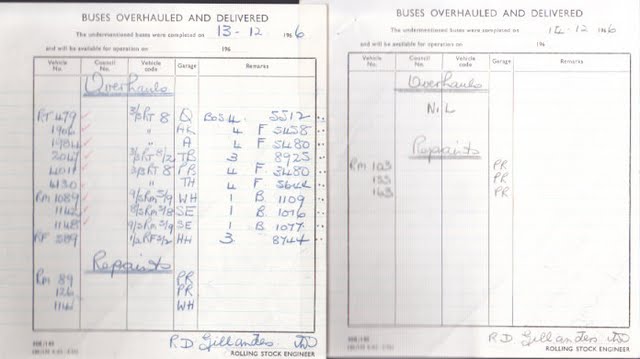 BUSES OVERHAULED AND DELIVERED
The undermentioned buses were completed on 13-12 1966
and will be available for operation on 196
Vehicle No. Council No. Vehicle code Garage Remarks
Overhauls
RT 479 3/3RT 8 Q BOS 4. 5512
1906 " AK 4 F 5458
1984 " A 4 F 5480
2047 3/3RT 8/2 TB 3 8925
4011 3/3RT 8 PB 4 F 3480
4130 " TH 4 F
RM 1089 WH 1 B. 1109
1142 SE 1 B. 1076
1148 SE 1 B. 1077
RF 589 HH 3. 8744
Repaints
RM 89 PR
126 PR
WH
R.D. Gillanders
ROLLING STOCK ENGINEER
BUSES OVERHAULED AND DELIVERED
The undermentioned buses were completed on 12 1966
and will be available for operation on 196
Vehicle No. Council No. Vehicle code Garage Remarks
Overhauls
NIL
Repaints
RM 103 PR
133 PR
163 PR
R.D. Gillanders
ROLLING STOCK ENGINEER